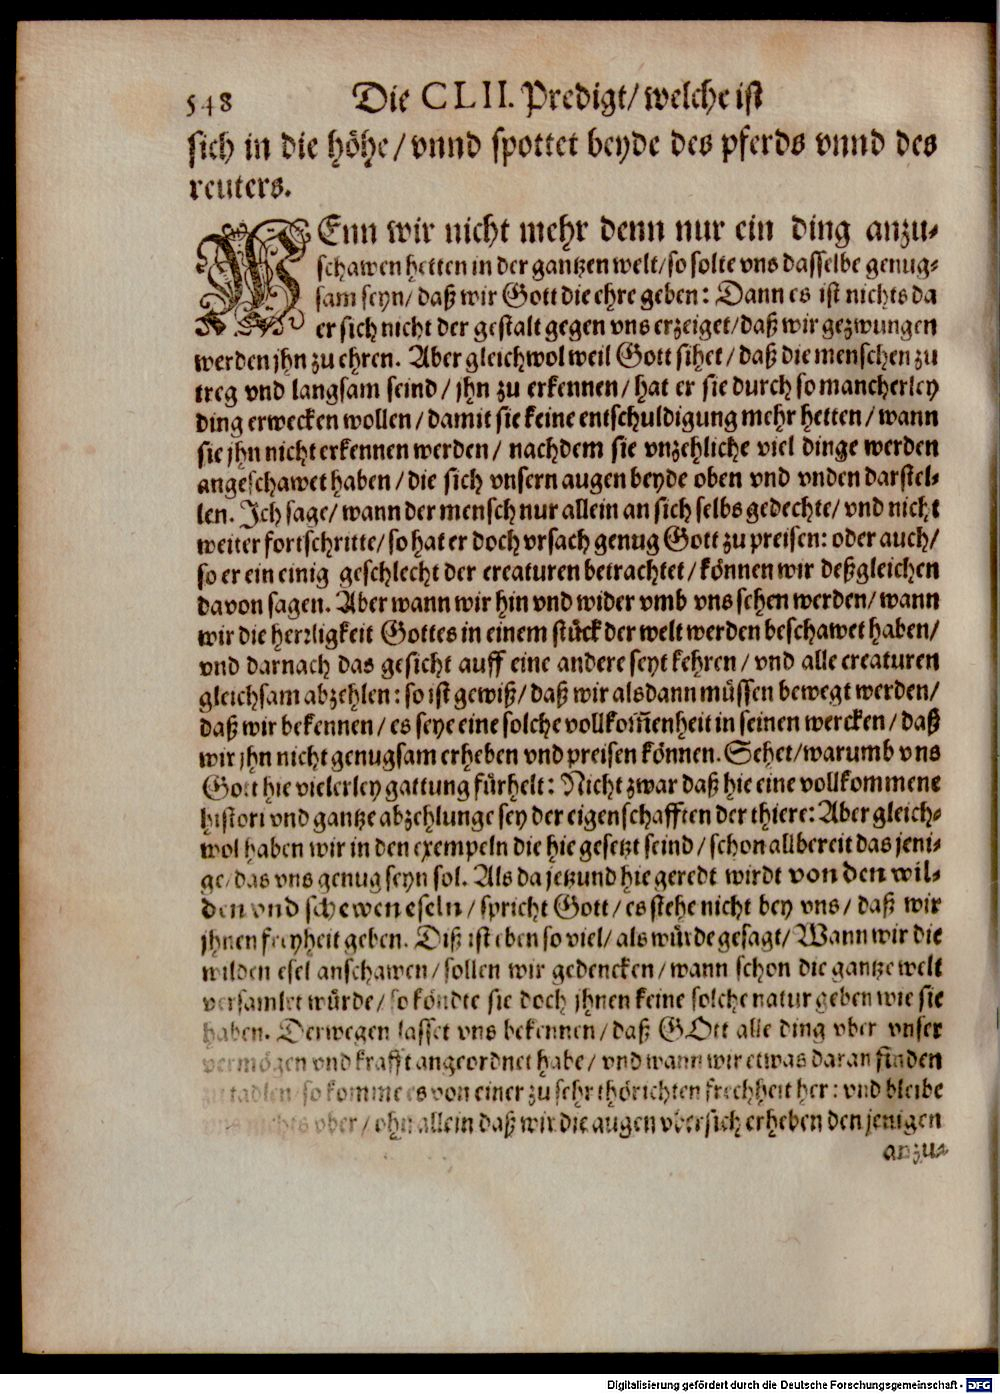 548 Die CLII. Predigt/ welche ist
sich in die höhe/ vnnd spottet beyde des pferds vnnd des
reuters.
WEnn wir nicht mehr denn nur ein ding anzu-
schawen hetten in der gantzen welt/ so solte vns dasselbe genug-
sam seyn/ daß wir Gott die ehre geben: Dann es ist nichts da
er sich nicht der gestalt gegen vns erzeiget/ daß wir gezwungen
werden jhn zu ehren. Aber gleichwol weil Gott sihet/ daß die menschen zu
treg vnd langsam seind/ jhn zu erkennen/ hat er sie durch so mancherley
ding erwecken wollen/ damit sie keine entschuldigung mehr hetten/ wann
sie jhn nicht erkennen werden/ nachdem sie vnzehliche viel dinge werden
angeschawet haben/ die sich vnsern augen beyde oben vnd vnden darstel-
len. Ich sage/ wann der mensch nur allein an sich selbs gedechte/ vnd nicht
weiter fortschritte/ so hat er doch vrsach genug Gott zu preisen: oder auch/
so er ein einig geschlecht der creaturen betrachtet/ können wir deßgleichen
davon sagen. Aber wann wir hin vnd wider vmb vns sehen werden/ wann
wir die herrligkeit Gottes in einem stück der welt werden beschawet haben/
vnd darnach das gesicht auff eine andere seyt kehren/ vnd alle creaturen
gleichsam abzehlen: so ist gewiß/ daß wir alsdann müssen bewegt werden/
daß wir bekennen/ es seye eine solche vollkom̄enheit in seinen wercken/ daß
wir jhn nicht genugsam erheben vnd preisen können. Sehet/ warumb vns
Gott hie vielerley gattung fürhelt: Nicht zwar daß hie eine vollkommene
histori vnd gantze abzehlunge sey der eigenschafften der thiere: Aber gleich-
wol haben wir in den exempeln die hie gesetzt seind/ schon allbereit das jeni-
ge/ das vns genug seyn sol. Als da jetzund hie geredt wirdt von den wil-
den vnd schewen eseln/ spricht Gott/ es stehe nicht bey vns/ daß wir
jhnen freyheit geben. Diß ist eben so viel/ als würde gesagt/ Wann wir die
wilden esel anschawen/ sollen wir gedencken/ wann schon die gantze welt
versamlet würde/ so köndte sie doch jhnen keine solche natur geben wie sie
haben. Derwegen lasset vns bekennen/ daß GOtt alle ding vber vnser
vermögen vnd krafft angeordnet habe/ vnd wann wir etwas daran finden
zu tadlen/ so komme es von einer zu sehr thörichten frechheit her: vnd bleibe
vns nichts vber/ ohn allein daß wir die augen vbersich erheben den jenigen
anzu-
Digitalisierung gefördert durch die Deutsche Forschungsgemeinschaft - DFG